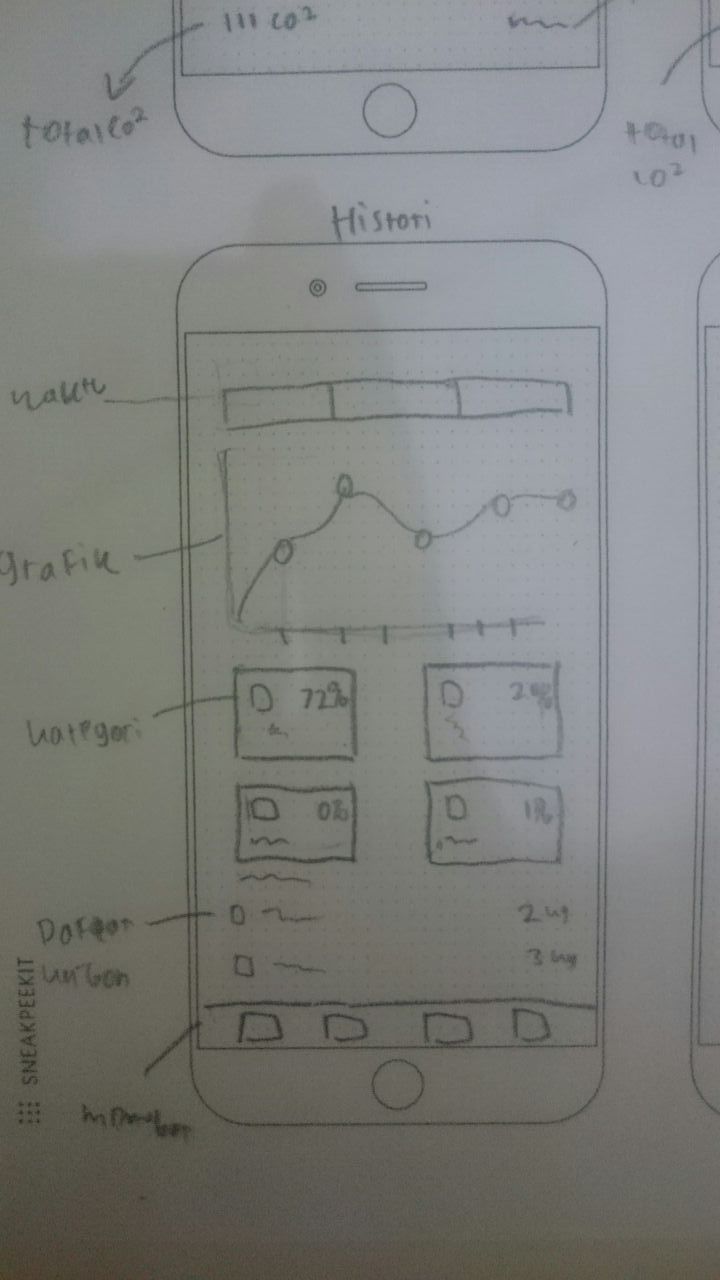 111 CO²
total CO²
total
CO²
Histori
waktu
grafik
kategori
72%
0%
1%
Daftar
2 kg
3 kg
SNEAKPEEKIT